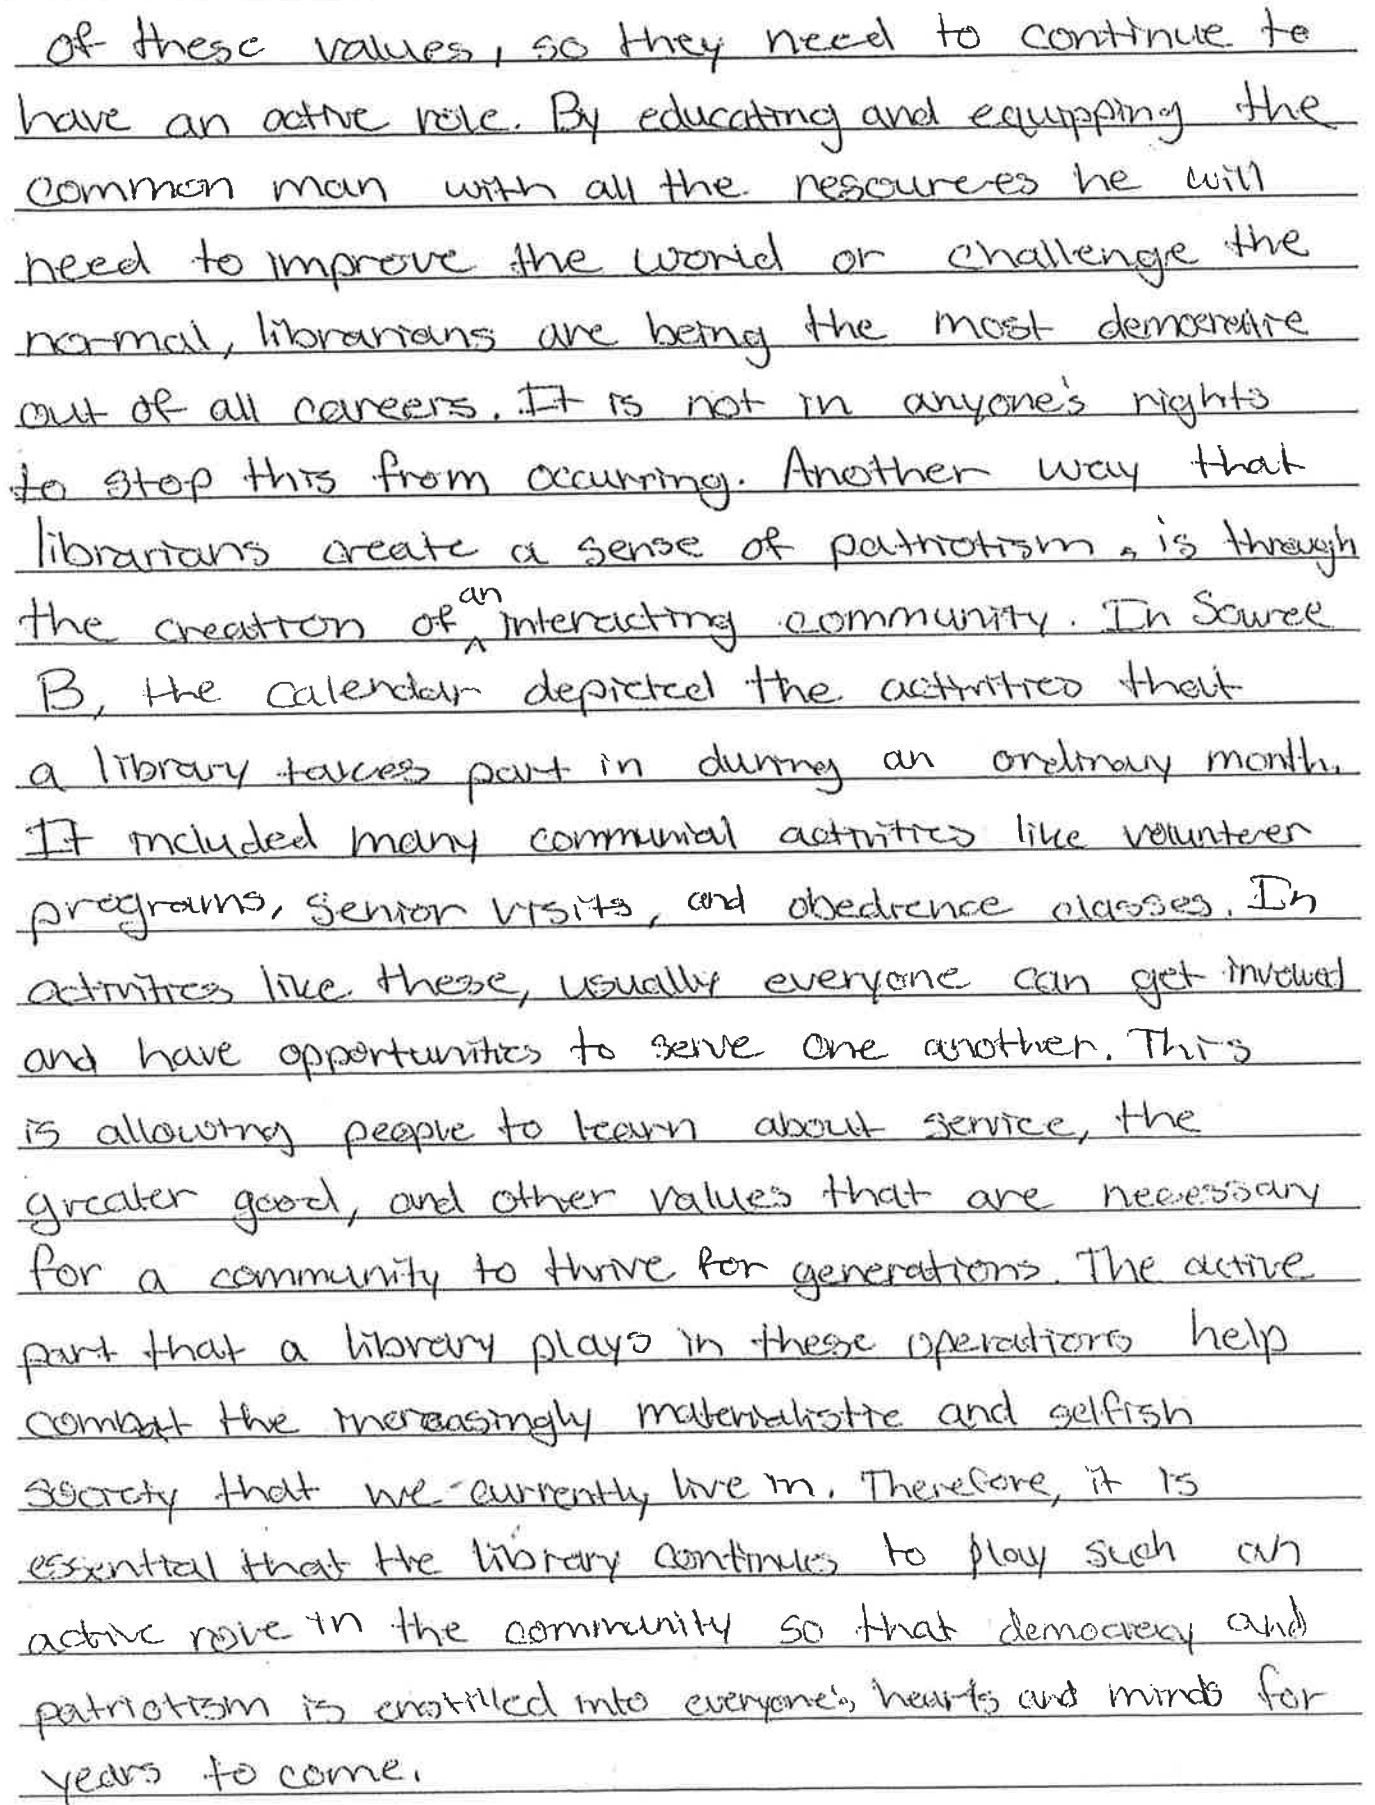 of these values, so they need to continue to
have an active role. By educating and equipping the
common man with all the resources he will
need to improve the world or challenge the
normal, librarians are being the most democratic
out of all careers. It is not in anyone's rights
to stop this from occurring. Another way that
librarians create a sense of patriotism, is through
the creation of an interacting community. In Source
B, the calendar depicted the activities that
a library takes part in during an ordinary month.
It included many communial activities like volunteer
programs, senior visits, and obedience classes. In
activities like these, usually everyone can get involved
and have opportunities to serve one another. This
is allowing people to learn about service, the
greater good, and other values that are necessary
for a community to thrive for generations. The active
part that a library plays in these operations help
combat the increasingly materialistic and selfish
society that we currently live in. Therefore, it is
essential that the library continues to play such an
active role in the community so that democracy and
patriotism is enstilled into everyone's hearts and minds for
years to come.